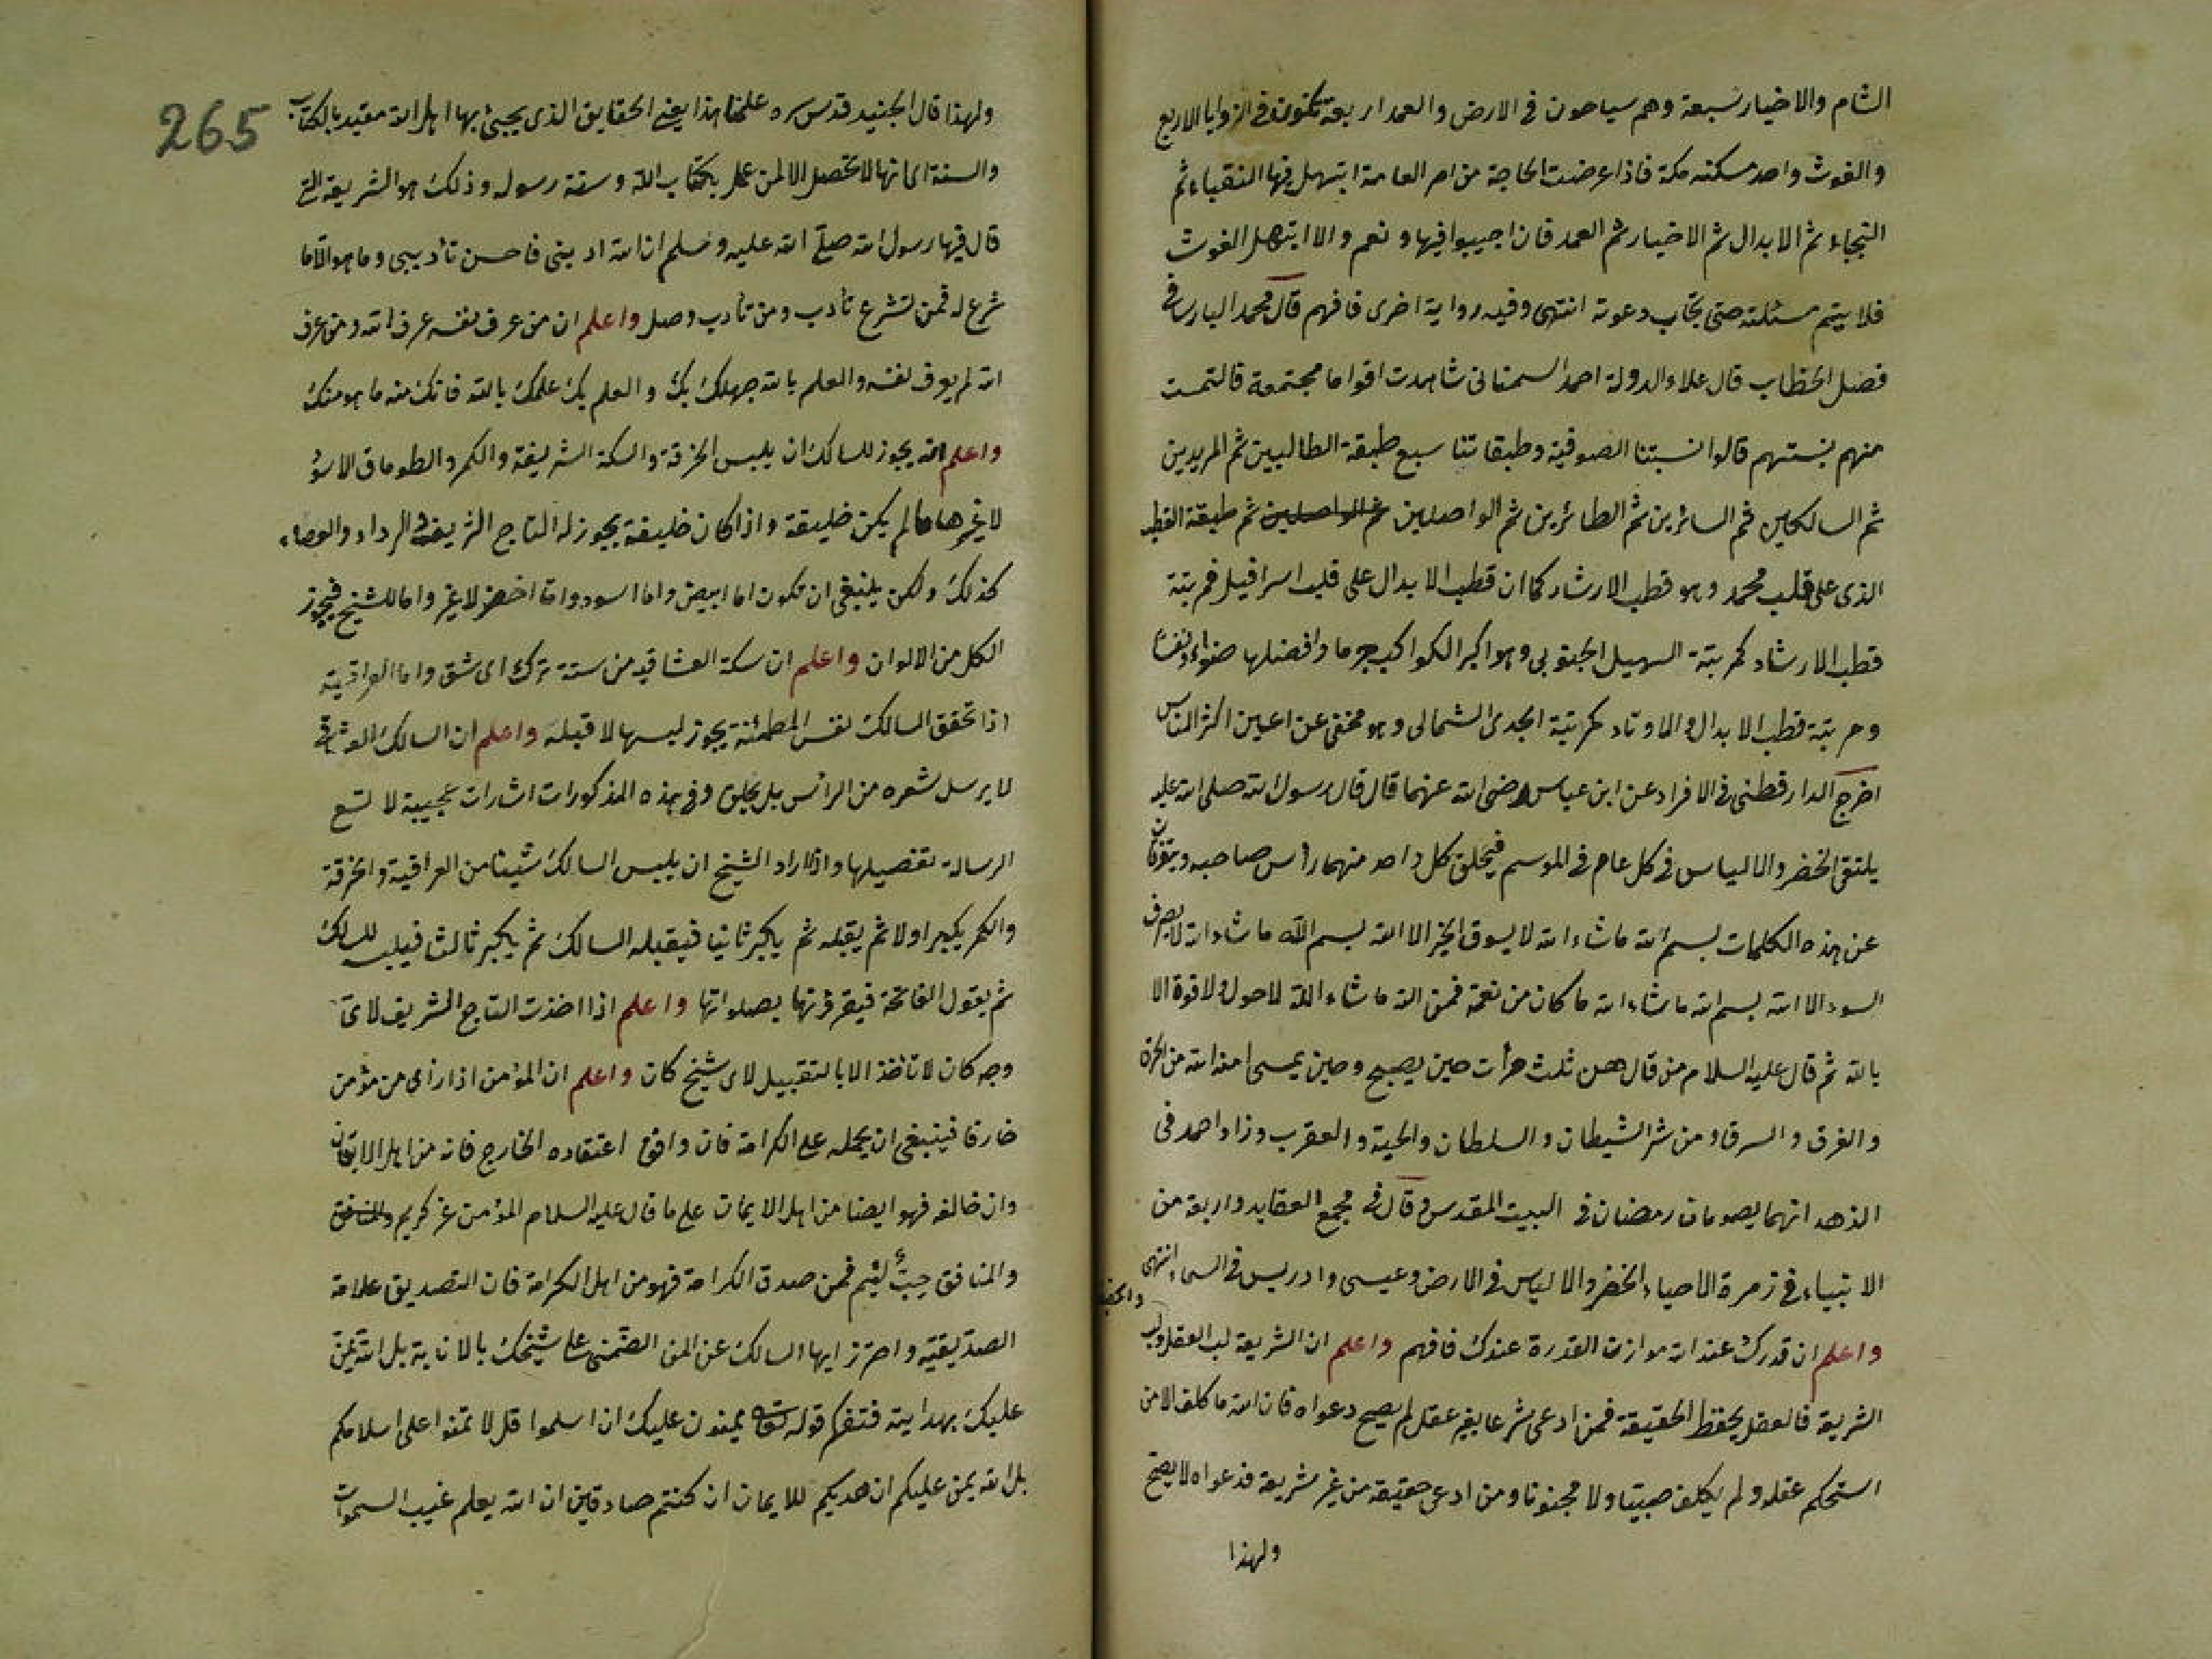 الشام والاخيار سبعة وهم سياحون فى الارض والعمد اربعة تكونون فى الزوايا الاربع
والغوث واحد مسكنه مكة فاذا عرضت الحاجة من امر العامة ابتهل فيها النقباء ثم
النجباء ثم الابدال ثم الاخيار ثم العمد فان اجيبوا فيها ونعم والا ابتهل الغوث
فلا يتم مسئلته حتى تجاب دعوته انتهى وفيه رواية اخرى فافهم قال محمد البارسا فى
فصل الخطاب قال علاء الدولة احمد السمنانى شاهدت اقواما مجتمعة فالتمست
منهم نسبتهم قالوا نسبتنا الصوفية وطبقاتنا سبع طبقة الطالبين ثم المريدين
ثم السالكين ثم السائرين ثم الطائرين ثم الواصلين ثم الواصلين ثم طبقة القطب
الذى على قلب محمد وهو قطب الارشاد كما ان قطب الابدال على قلب اسرافيل فمرتبة
قطب الارشاد كمرتبة السهيل الجنوبى وهو اكبر الكواكب جرما وافضلها ضواء ونفعا
ومرتبة قطب الابدال والاوتاد كمرتبة الجدى الشمالى وهو مخفى عن اعين اكثر الناس
اخرج الدارقطنى فى الافراد عن ابن عباس رضى الله عنهما قال قال رسول الله صلى الله عليه
يلتقى الخضر والالياس فى كل عام فى الموسم فيحلق كل واحد منهما رأس صاحبه ويتفرقان
عن هذه الكلمات بسم الله ماشاء الله لا يسوق الخير الا الله بسم الله ماشاء الله لا يصرف
السوء الا الله بسم الله ماشاء الله ما كان من نعمة فمن الله ماشاء الله لاحول ولا قوة الا
بالله ثم قال عليه السلام من قالهن ثلث مرات حين يصبح وحين يمسى امنه الله من الحرق
والغرق والسرق ومن شر الشيطان والسلطان والحية والعقرب وزاد احمد فى
الزهد انهما يصومان رمضان فى البيت المقدس وقال فى مجمع العقايد واربعة من
الانبياء فى زمرة الاحياء الخضر والالياس فى الارض وعيسى وادريس فى السماء انتهى
واعلم ان قدرك عند الله موازن القدرة عندك فافهم واعلم ان الشريعة لب العقل ولب
الشريعة فالعقل يحفظ الحقيقة فمن ادعى شرعا بغير عقل لم يصح دعواه فان الله ما كلف الا من
استحكم عقله ولم يكلف صبيا ولا مجنونا ومن ادعى حقيقة من غير شريعة فدعواه لا يصح
ولهذا
265
ولهذا قال الجنيد قدس سره علمنا هذا يعنى الحقايق الذى يجيئ بها اهل الله مقيد بالكتاب
والسنة اى انها لا تحصل الا لمن عمل بكتاب الله وسنة رسوله وذلك هو الشريعة التى
قال فيها رسول الله صلى الله عليه وسلم ان الله ادبنى فاحسن تأديبى وما هو الا ما
شرع له فمن تشرع تأدب ومن تأدب وصل واعلم ان من عرف نفسه عرف الله ومن عرف
الله لم يعرف نفسه والعلم بالله جهلك بك والعلم بك علمك بالله فانك منه ما هو منك
واعلم انه يجوز للسالك ان يلبس الخرقة والسكة الشريفة والكمر والطوماق الاسود
لا غيرها ما لم يكن خليفة واذا كان خليفة يجوز له التاج الشريف والرداء والعصاء
كذلك ولكن ينبغى ان تكون اما ابيض واما اسود واما اخضر لا غير واما للشيخ فيجوز
الكل من الالوان واعلم ان سكة العشاقيه من ستة ترك اى شق واما العراقية
اذا تحقق السالك نفس المطمئنة يجوز لبسها لا قبله واعلم ان السالك العشاقى
لا يرسل شعره من الرأس بل يحلق وفى هذه المذكورات اشارات عجيبة لا تسع
الرسالة تفصيلها واذا اراد الشيخ ان يلبس السالك شيئا من العراقية والخرقة
والكمر يكبر اولا ثم يقبله ثم يكبر ثانيا فيقبله السالك ثم يكبر ثالثا فيلبسه للسالك
ثم يقول الفاتحة فيقرؤنها بصلواتها واعلم اذا اخذت التاج الشريف لاى
وجه كان لا تاخذ الا بالتقبيل لاى شيخ كان واعلم ان المؤمن اذا رأى من مؤمن
خارقا فينبغى ان يحمله على الكرامة فان وافق اعتقاده الخارج فانه من اهل الايقان
وان خالفه فهو ايضا من اهل الايمان على ما قال عليه السلام المؤمن غر كريم والمنافق
والمنافق خب لئيم فمن صدق الكرامة فهو من اهل الكرامة فان التصديق علامة
الصديقية واحترز ايها السالك عن المن الضمنى على شيخك بالانابة بل الله يمن
عليك بهدايته فتفكر قوله تعالى يمنون عليك ان اسلموا قل لا تمنوا على اسلامكم
بل الله يمن عليكم ان هديكم للايمان ان كنتم صادقين ان الله يعلم غيب السموات